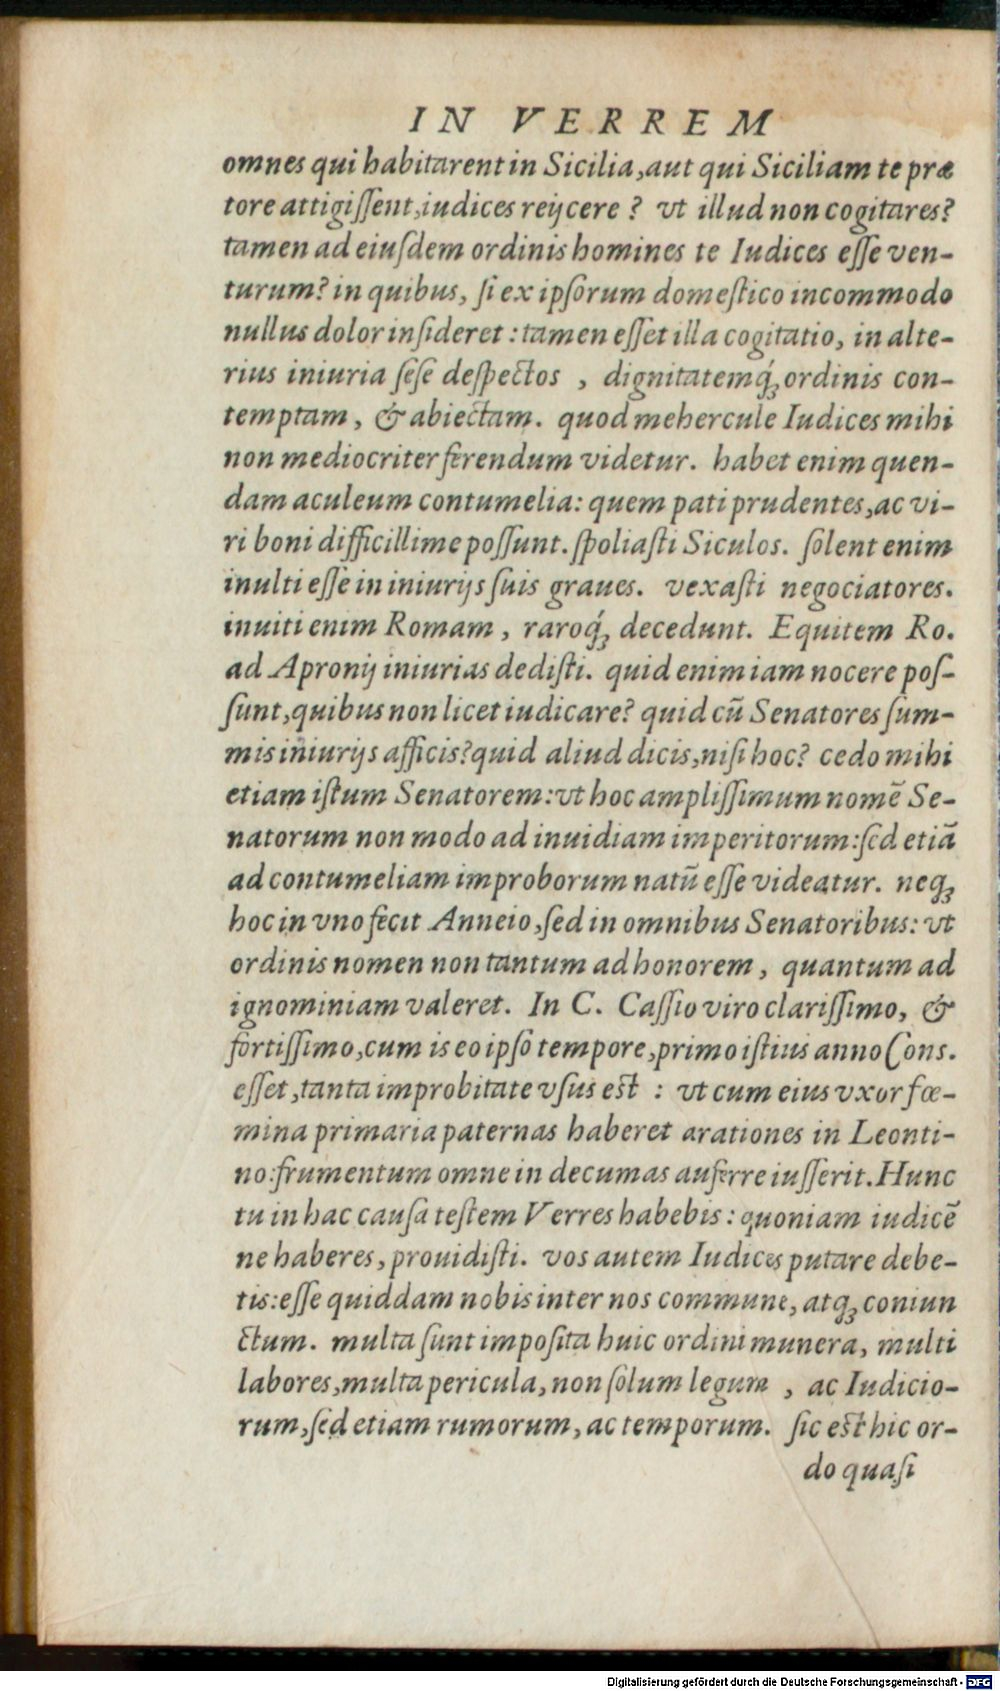 IN VERREM
omnes qui habitarent in Sicilia, aut qui Siciliam te præ
tore attigiſſent, iudices reijcere? vt illud non cogitares?
tamen ad eiuſdem ordinis homines te Iudices eſſe ven-
turum? in quibus, ſi ex ipſorum domeſtico incommodo
nullus dolor inſideret: tamen eſſet illa cogitatio, in alte-
rius iniuria ſeſe deſpectos, dignitatemq́ꝫ ordinis con-
temptam, & abiectam. quod mehercule Iudices mihi
non mediocriter ferendum videtur. habet enim quen-
dam aculeum contumelia: quem pati prudentes, ac vi-
ri boni difficillime poſſunt. ſpoliaſti Siculos. ſolent enim
inulti eſſe in iniurijs ſuis graues. vexaſti negociatores.
inuiti enim Romam, raroq́ꝫ decedunt. Equitem Ro.
ad Apronij iniurias dediſti. quid enim iam nocere poſ-
ſunt, quibus non licet iudicare? quid cū Senatores ſum-
mis iniurijs afficis? quid aliud dicis, niſi hoc? cedo mihi
etiam iſtum Senatorem: vt hoc ampliſſimum nomē Se-
natorum non modo ad inuidiam imperitorum: ſed etiā
ad contumeliam improborum natū eſſe videatur. neqꝫ
hoc in vno fecit Anneio, ſed in omnibus Senatoribus: vt
ordinis nomen non tantum ad honorem, quantum ad
ignominiam valeret. In C. Caſſio viro clariſſimo, &
fortiſſimo, cum is eo ipſo tempore, primo iſtius anno Conſ.
eſſet, tanta improbitate vſus eſt: vt cum eius vxor fœ-
mina primaria paternas haberet arationes in Leonti-
no: frumentum omne in decumas auferre iuſſerit. Hunc
tu in hac cauſa teſtem Verres habebis: quoniam iudicē
ne haberes, prouidiſti. vos autem Iudices putare debe-
tis: eſſe quiddam nobis inter nos commune, atqꝫ coniun
ctum. multa ſunt impoſita huic ordini munera, multi
labores, multa pericula, non ſolum legum, ac Iudicio-
rum, ſed etiam rumorum, ac temporum. ſic eſt hic or-
do quaſi
Digitalisierung gefördert durch die Deutsche Forschungsgemeinschaft - DFG